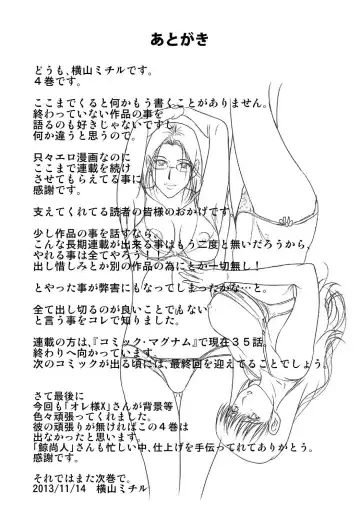 あとがき
どうも、横山ミチルです。
４巻です。
ここまでくると何かもう書くことがありません。
終わっていない作品の事を
語るのも好きじゃないですし
何か違うと思うので。
只々エロ漫画なのに
ここまで連載を続け
させてもらえてる事に
感謝です。
支えてくれてる読者の皆様のおかげです。
少し作品の事を話すなら、
こんな長期連載が出来る事はもう二度と無いだろうから、
やれる事は全てやろう！！
出し惜しみとか別の作品の為にとか一切無し！
とやった事が弊害にもなってしまったかな…と。
全て出し切るのが良いことでもない
と言う事をコレで知りました。
連載の方は、『コミック・マグナム』で現在３５話。
終わりへ向かっています。
次のコミックが出る頃には、最終回を迎えてることでしょう。
さて最後に
今回も「オレ様X」さんが背景等
色々頑張ってくれました。
彼の頑張りが無ければこの４巻は
出なかったと思います。
「鯨尚人」さんも忙しい中、仕上げを手伝ってくれてありがとう。
感謝です。
それではまた次巻で。
2013/11/14　横山ミチル